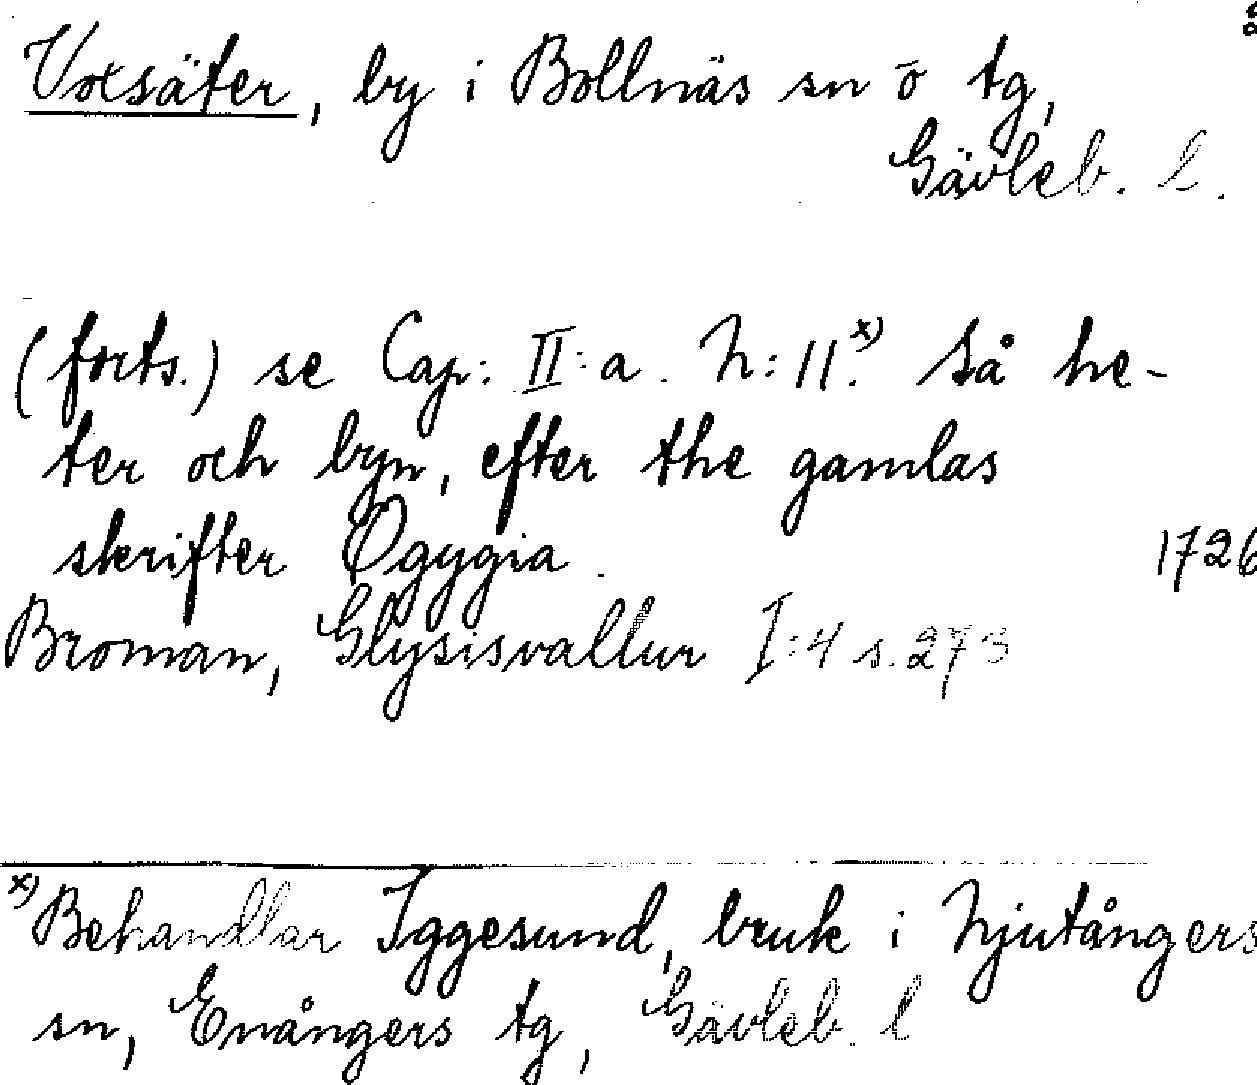 Voxsäter, by i Bollnäs sn o tg,
Gävleb. l.
(forts.) se Cap: II:a. N: 11.x) Så he-
ter och byn, efter the gamlas
skrifter Ogygia. 1726
Broman, Glysisvallur I:4 s. 273
x) Behandlar Iggesund, bruk i Njutångers
sn, Enångers tg, Gävleb. l